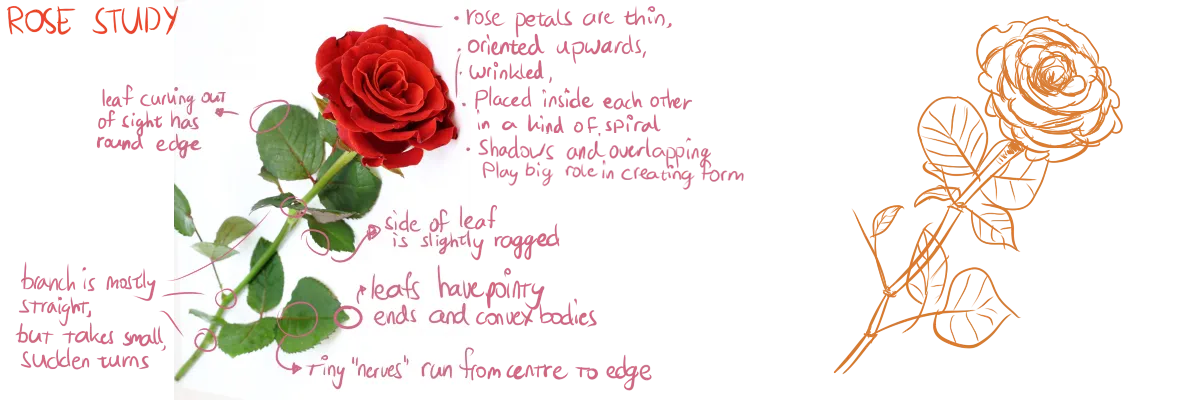 ROSE STUDY
• rose petals are thin,
• oriented upwards,
• wrinkled,
• Placed inside each other
in a kind of spiral
• Shadows and overlapping
Play big role in creating form
leaf curving out
of sight has
round edge
side of leaf
is slightly ragged
branch is mostly
straight,
but takes small,
sudden turns
leafs have pointy
ends and convex bodies
tiny "nerves" run from centre to edge